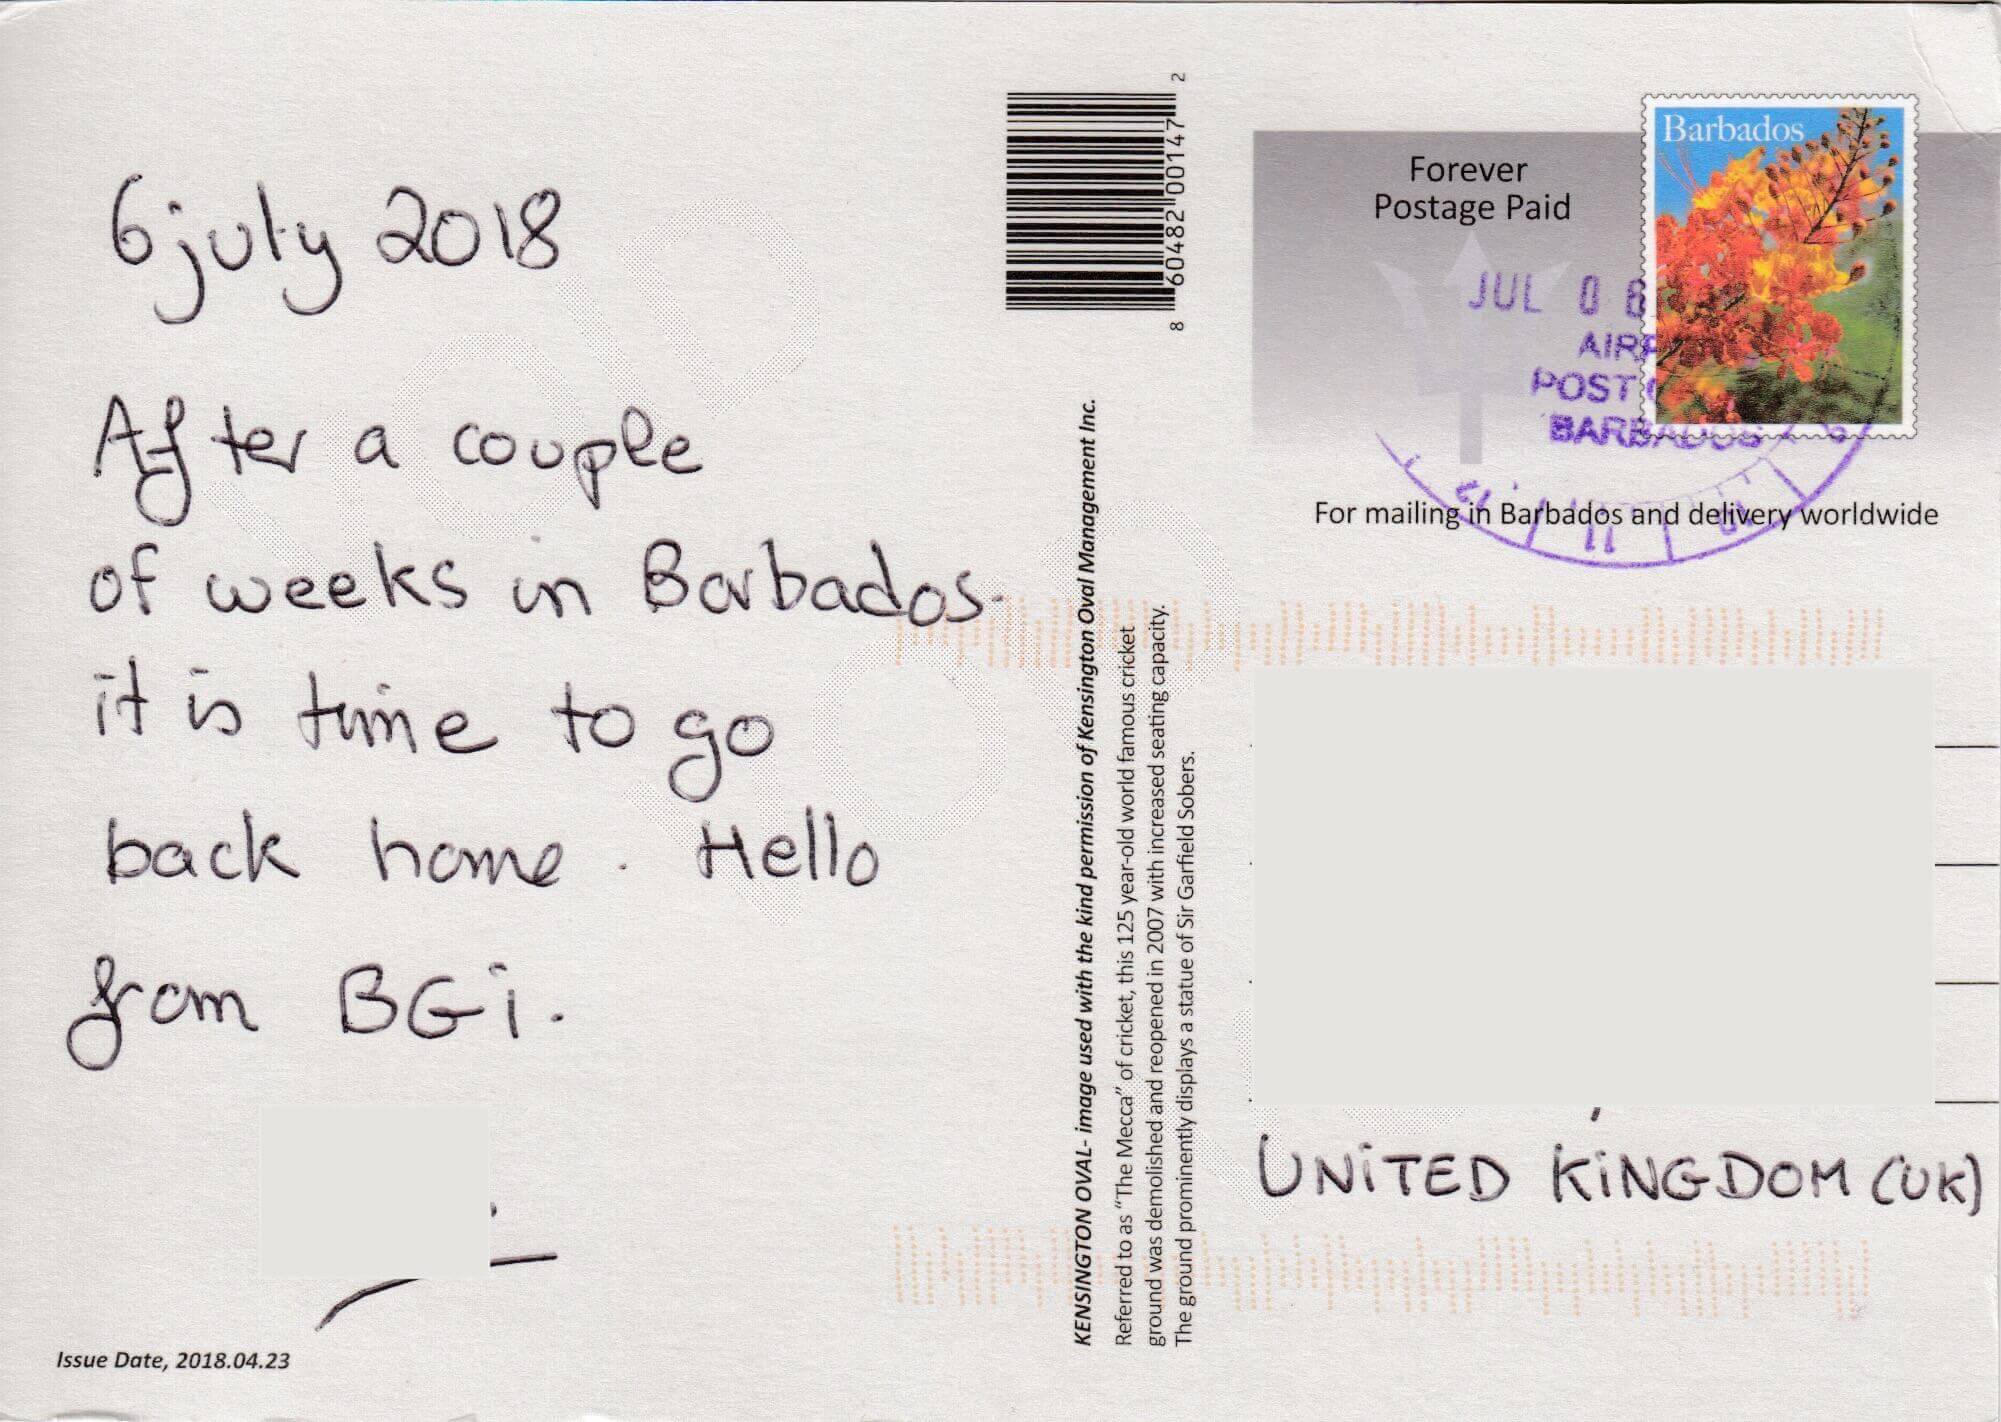 6 july 2018
After a couple
of weeks in Barbados
it is time to go
back home. Hello
from BGi.
Issue Date, 2018.04.23
8 60482 00147 2
KENSINGTON OVAL- image used with the kind permission of Kensington Oval Management Inc.
Referred to as "The Mecca" of cricket, this 125 year-old world famous cricket
ground was demolished and reopened in 2007 with increased seating capacity.
The ground prominently displays a statue of Sir Garfield Sobers.
Forever
Postage Paid
Barbados
JUL 0
AIRP
POST
BARBADOS
12 11 10 9
For mailing in Barbados and delivery worldwide
UNiTED KiNGDOM (UK)
VOID
VOID